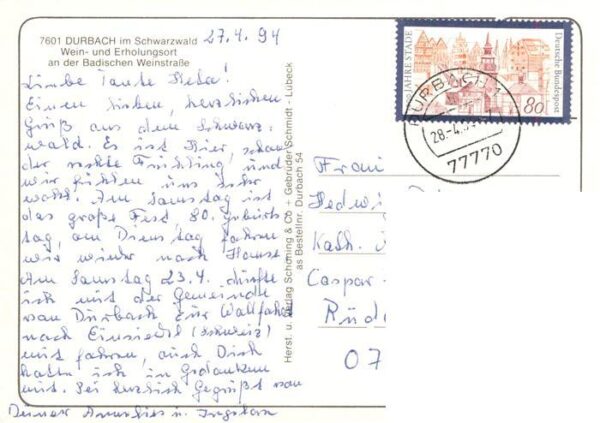 7601 DURBACH im Schwarzwald
Wein- und Erholungsort
an der Badischen Weinstraße
27.4.94
Liebe Tante Heta!
Einen lieben, herzlichen
Gruß aus dem Schwarz-
wald. Es ist hier schon
der rechte Frühling, und
wir fühlen uns sehr
wohl. Am Samstag ist
das große Fest 80. Geburts
tag, am Dienstag fahren
wir wieder nach Hause
Am Samstag 23.4. durfte
ich mit der Gemeinde
von Durbach zur Wallfahrt
nach Einsiedl (Schweiz)
mit fahren, auch Dich
hatte ich in Gedanken
mit. Sei herzlich gegrüßt von
Deiner u.
Herst. u. Verlag Schöning & Co + Gebrüder Schmidt - Lübeck
as Bestellnr. Durbach 54
JAHRE STADE
Deutsche Bundespost
80
DURBACH 1
28.-4.
77770
Frau
Hedwi
Kath.
Caspar-
Rüd
07